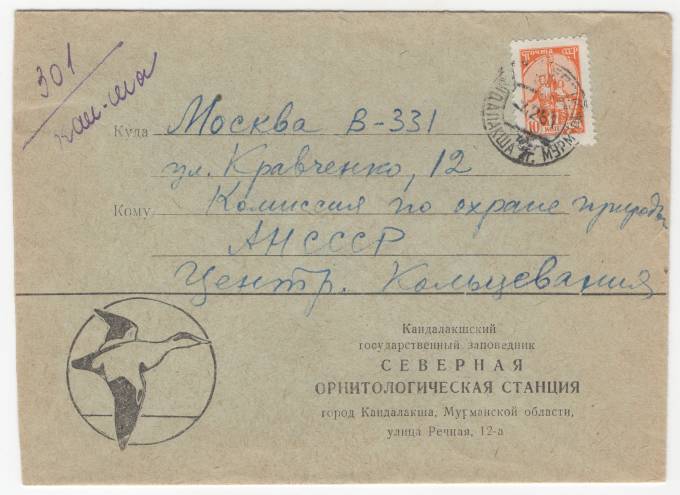 301
Куда Москва В-331
ул. Кравченко, 12
Кому Комиссия по охране природы
АН СССР
Центр. Кольцевания
ПОЧТА СССР
10
КАНДАЛАКША МУРМ
Кандалакшский
государственный заповедник
СЕВЕРНАЯ
ОРНИТОЛОГИЧЕСКАЯ СТАНЦИЯ
город Кандалакша, Мурманской области,
улица Речная, 12-а